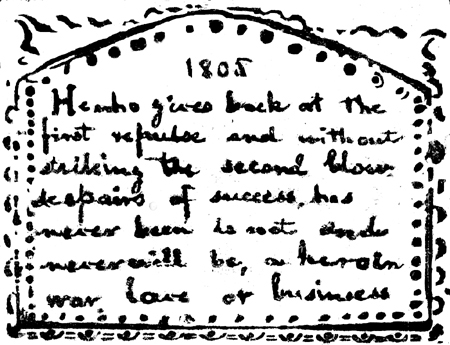 1805
He who gives back at the
first repulse and without
striking the second blow
despairs of success, has
never been is not and
never will be, a hero in
war, love or business